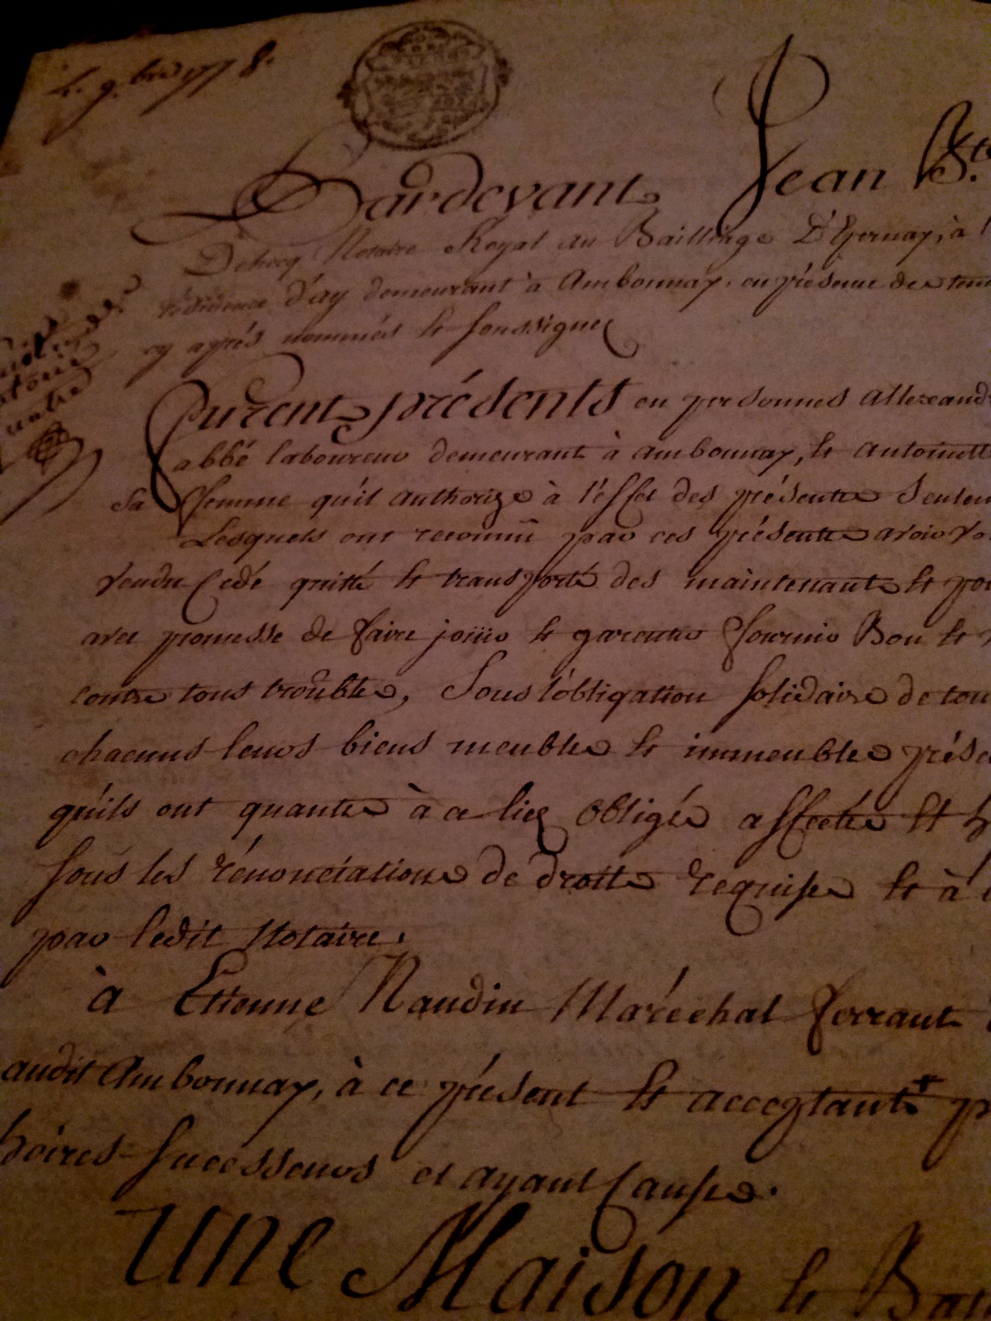 9.bre 1778.
Pardevant Jean B.te
Notaire Royal au Bailliage D'Epernay, à
résidence d'ay demeurant à Ambonnay, en présence des tem
cy aprés nommés et soussignes
Furent présents en personnes Allexand
abbé laboureur demeurant à ambonnay, et antoinette
sa femme qu'il authorize à l'éffet des présentes Seulem
Lesquels ont reconnu par ces présentes avoir vo
vendu Cédé quitté et transporté des maintenant et pou
avec promesse de faire joüir et garentir fournir Bon et v
contre tous troubles, Sous l'obligation solidaire de tou
chacuns leurs biens meubles et immeubles prése
qu'ils ont quante à ce lieg obligés affectés et h
sous les rénonciations de droits requises et à
par ledit Notaire.
à Etienne Naudin Maréchal ferrant
audit Ambonnay, à ce présent et acceptant + p
hoires successeurs et ayant Cause.
Une Maison et Bati